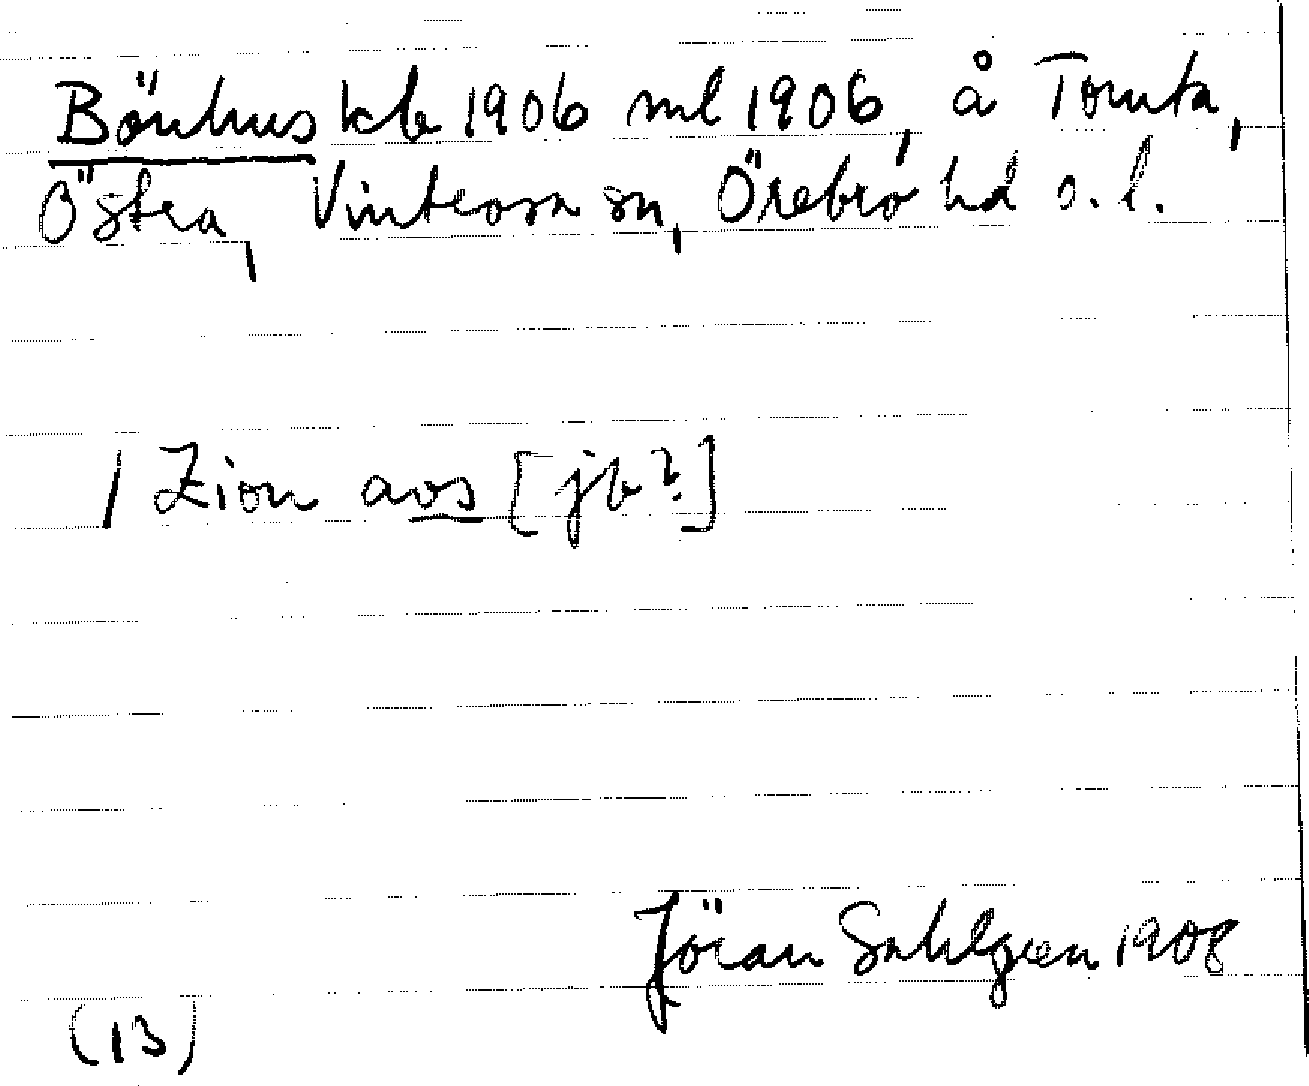 Bönhus kb 1906 ml 1906, å Tomta,
Östra, Vintrosa sn, Örebro hd o. l.
/ Zion aos [jb?]
Jöran Sahlgren 1908
(13)